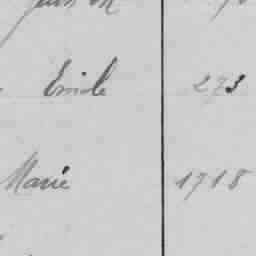 Emile 273
Marie 1718